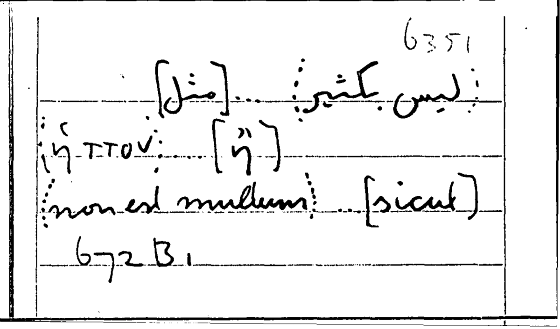 6351
ليس بكثير ... [مثل]
ἧττον ... [ἢ]
non est multum ... [sicut]
672 B 1